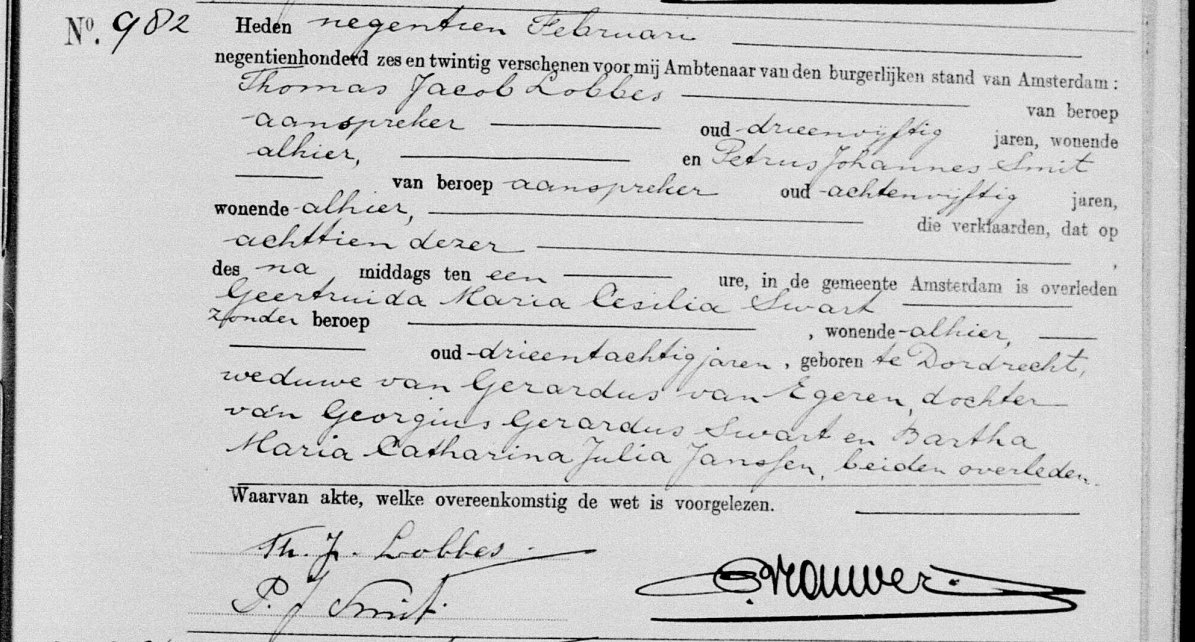 Nº. 982 Heden negentien Februari
negentienhonderd zes en twintig verschenen voor mij Ambtenaar van den burgerlijken stand van Amsterdam :
Thomas Jacob Lobbes van beroep
aanspreker oud drieenvijftig jaren, wonende
alhier, en Petrus Johannes Smit
van beroep aanspreker oud achtenvijftig jaren,
wonende alhier, die verklaarden, dat op
achttien dezer ,
des na middags ten een ure, in de gemeente Amsterdam is overleden
Geertruida Maria Cesilia Swart
zonder beroep , wonende alhier,
oud drieentachtig jaren , geboren te Dordrecht,
weduwe van Gerardus van Egeren, dochter
van Georgius Gerardus Swart en Bartha
Maria Catharina Julia Janssen, beiden overleden.
Waarvan akte, welke overeenkomstig de wet is voorgelezen.
Th. J. Lobbes
P. J Smit.